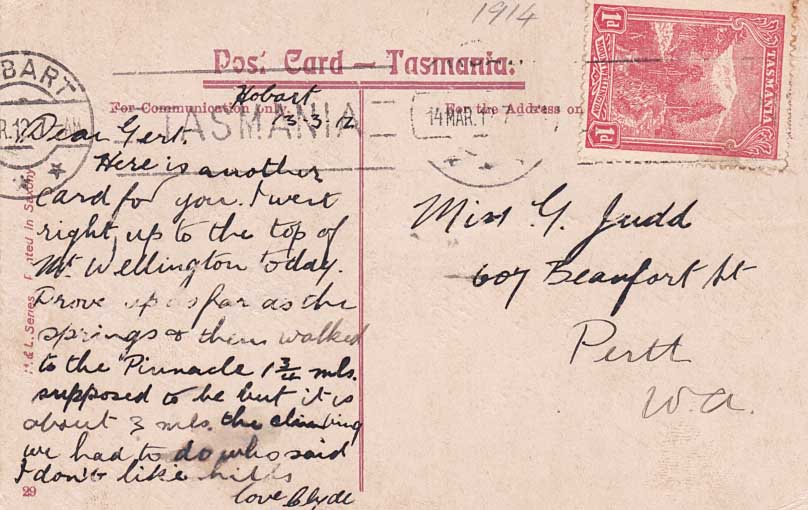 1914
Post Card – Tasmania.
For Communication only.
For the Address on
HOBART
TASMANIA
14 MAR. 1
1d
TASMANIA
1d
Hobart
13 3 12
Dear Gert.
Here is another
card for you. I went
right up to the top of
Mt Wellington today.
Drove up as far as the
springs & then walked
to the Pinnacle 1 3/4 mls.
supposed to be but it is
about 3 mls. the climbing
we had to do who said
I don't like hills
love Clyde
Miss G. Judd
607 Beaufort St
Perth
W.A.
H & L. Series. Printed in Saxony
29